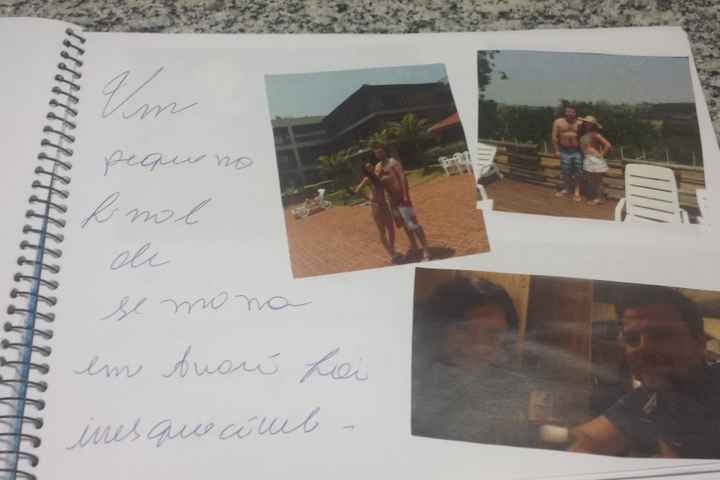 Um
pequeno
final
de
semana
em Avaré foi
inesquecível.